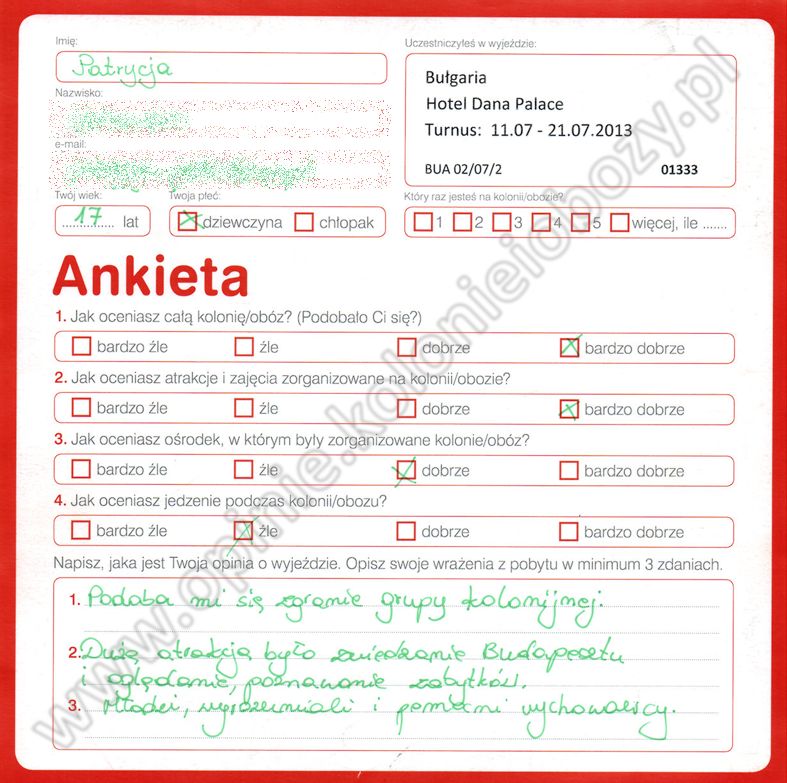 Imię:
Patrycja
Uczestniczyłeś w wyjeździe:
Bułgaria
Hotel Dana Palace
Turnus: 11.07 - 21.07.2013
BUA 02/07/2 01333
Nazwisko:
e-mail:
Twój wiek:
17 lat
Twoja płeć:
dziewczyna chłopak
Który raz jesteś na kolonii/obozie?
1 2 3 4 5 więcej, ile .......
Ankieta
1. Jak oceniasz całą kolonię/obóz? (Podobało Ci się?)
bardzo źle źle dobrze bardzo dobrze
2. Jak oceniasz atrakcje i zajęcia zorganizowane na kolonii/obozie?
bardzo źle źle dobrze bardzo dobrze
3. Jak oceniasz ośrodek, w którym były zorganizowane kolonie/obóz?
bardzo źle źle dobrze bardzo dobrze
4. Jak oceniasz jedzenie podczas kolonii/obozu?
bardzo źle źle dobrze bardzo dobrze
Napisz, jaka jest Twoja opinia o wyjeździe. Opisz swoje wrażenia z pobytu w minimum 3 zdaniach.
1. Podoba mi się zgranie grupy kolonijnej.
2. Dużą atrakcją było zwiedzanie Budapesztu
i oglądanie, poznawanie zabytków.
3. Młodzi, wyrozumiali i pomocni wychowawcy.
www.opinie.kolonieiobozy.pl